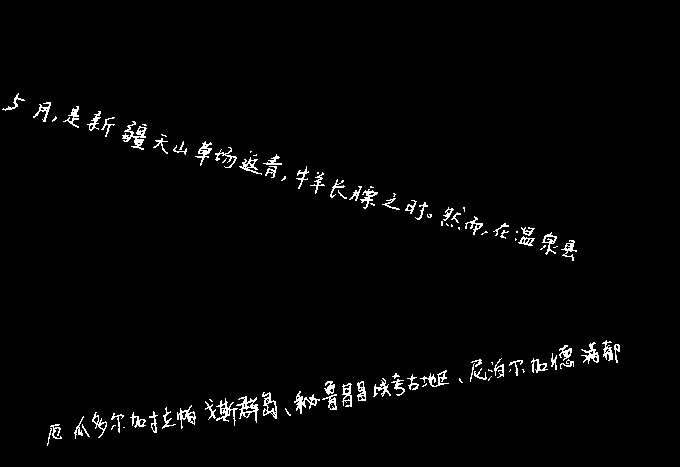 5月,是新疆天山草场返青,牛羊长膘之时。然而,在温泉县
厄瓜多尔加拉帕戈斯群岛、秘鲁昌昌城考古地区、尼泊尔加德满都